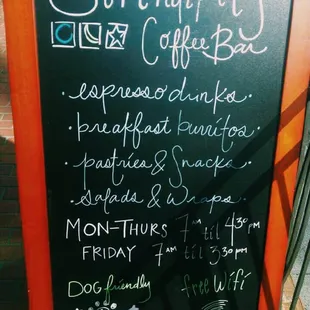 Serendipity
Coffee Bar
· espresso drinks ·
· breakfast burritos ·
· pastries & Snacks ·
· Salads & wraps ·
MON-THURS 7AM til 4:30 PM
FRIDAY 7AM til 3:30PM
DOG friendly free Wifi